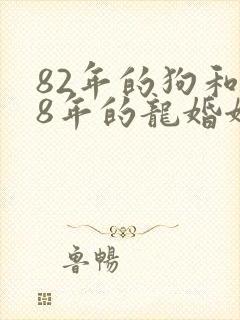 82年的狗和
8年的龍婚姻
魯暢